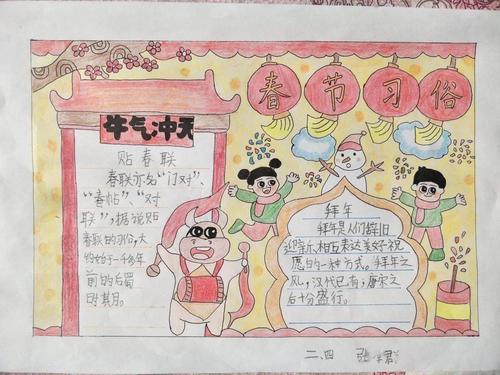 春节习俗
牛气冲天
贴春联
春联亦名“门对”、
“春帖”、“对
联”,据说贴
春联的习俗,大
约始于一千多年
前的后蜀
时期。
拜年
拜年是人们辞旧
迎新、相互表达美好祝
愿的一种方式。拜年之
风,汉代已有,唐宋之
后十分盛行。
二.四 张